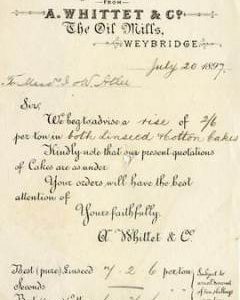 FROM
A. WHITTET & Co.
The Oil Mills,
WEYBRIDGE.
July 20 1897.
To Messrs J & W
Sir,
We beg to advise a rise of 2/6
per ton in both Linseed & Cotton Cakes
Kindly note that our present quotations
of Cakes are as under
Your orders will have the best
attention of
Yours faithfully,
A Whittet & Co.
Best (pure) Linseed 7 - 2 6 per ton
Seconds
Subject to